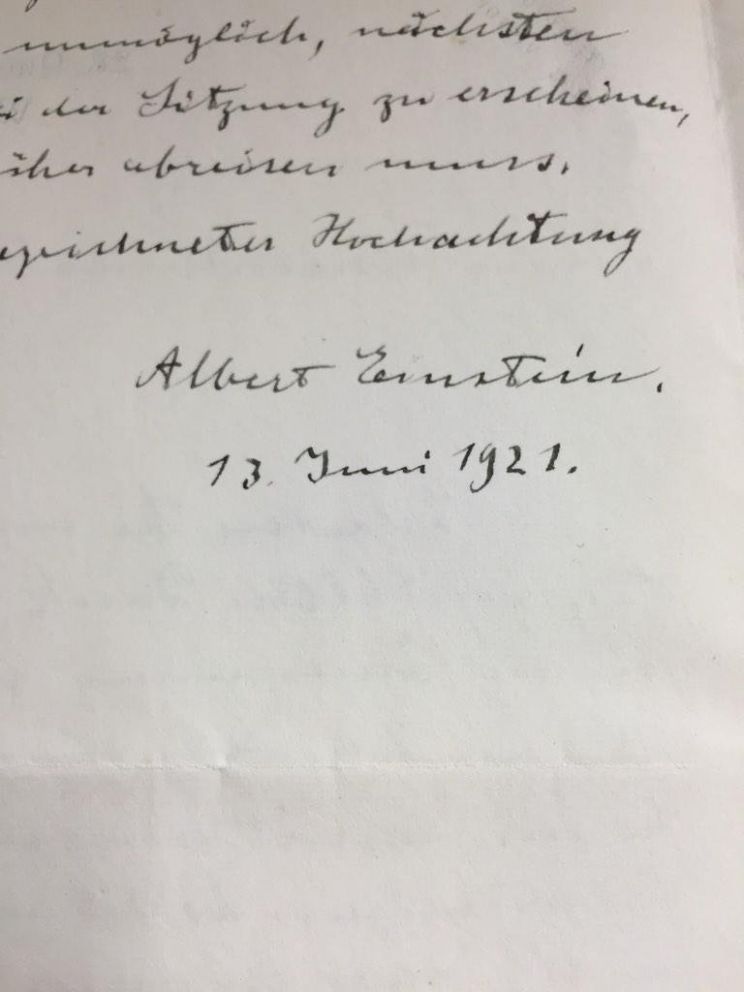 unmöglich, nächsten
der Sitzung zu erscheinen,
abreisen muss.
Hochachtung
Albert Einstein.
13. Juni 1921.